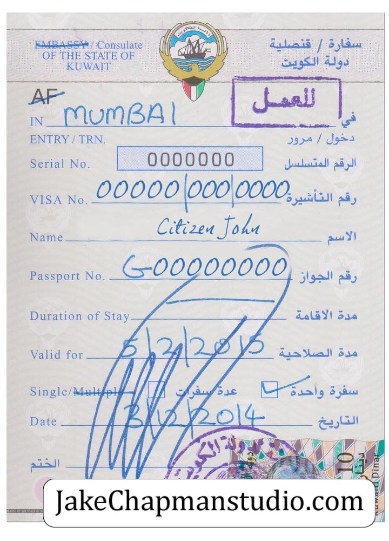 EMBASSY / Consulate سفارة / قنصلية
OF THE STATE OF دولة الكويت
KUWAIT
للعمل
AF
IN MUMBAI في
ENTRY / TRN. دخول / مرور
Serial No. 0000000 الرقم المتسلسل
VISA No. 00000/000/0000 رقم التأشيرة
Name Citizen John الاسم
Passport No. G-00000000 رقم الجواز
Duration of Stay مدة الاقامة
Valid for 5/2/2015 مدة الصلاحية
Single/Multiple عدة سفرات سفرة واحدة
Date 3/12/2014 التاريخ
الختم
10
JakeChapmanstudio.com